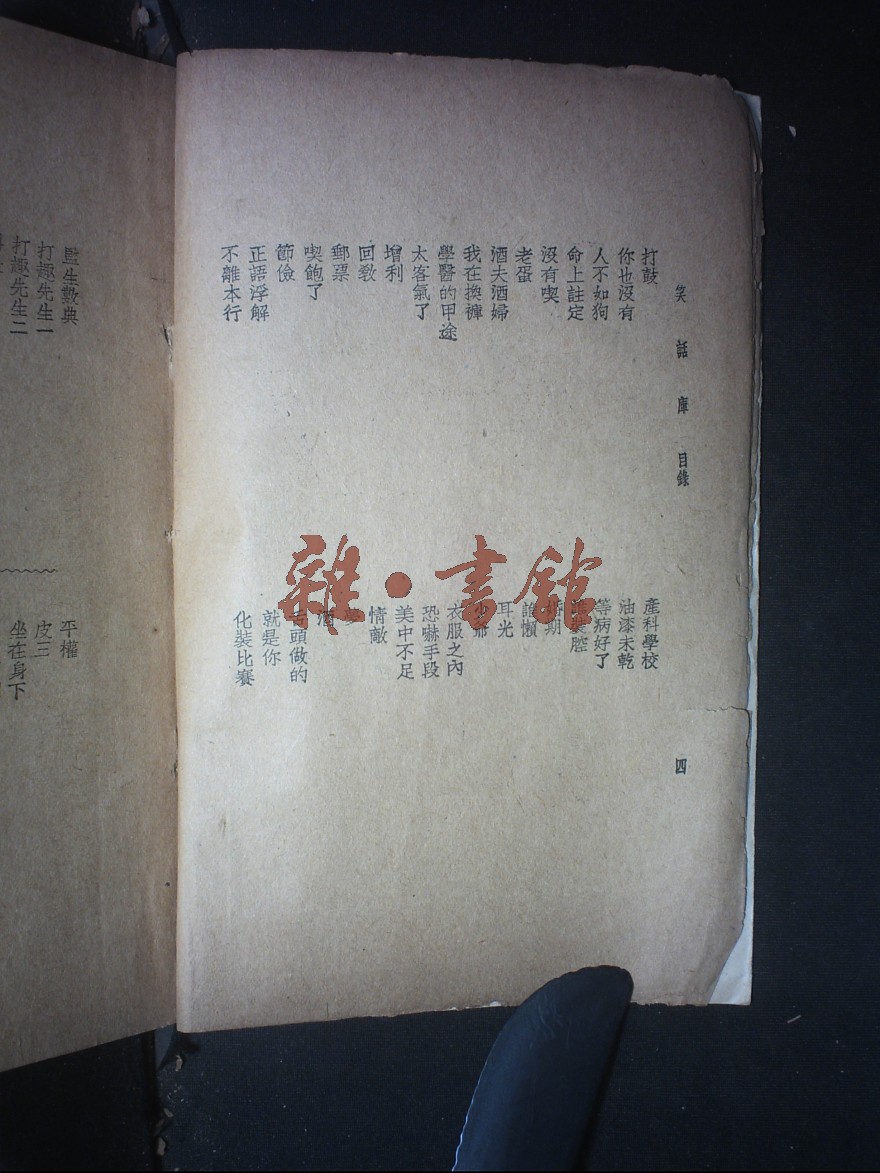 笑話庫 目錄
四
打鼓
你也沒有
人不如狗
命上註定
沒有喫
老蛋
酒夫酒婦
我在換褲
學醫的甲途
太客氣了
增利
回教
郵票
喫飽了
節儉
正語浮解
不離本行
產科學校
油漆未乾
等病好了
誰裝腔
婚期
誰懶
耳光
少爺
衣服之內
恐嚇手段
美中不足
情敵
夢
酒
舌頭做的
就是你
化裝比賽
雜·書館
監生數典
打趣先生一
打趣先生二
平權
皮三
坐在身下